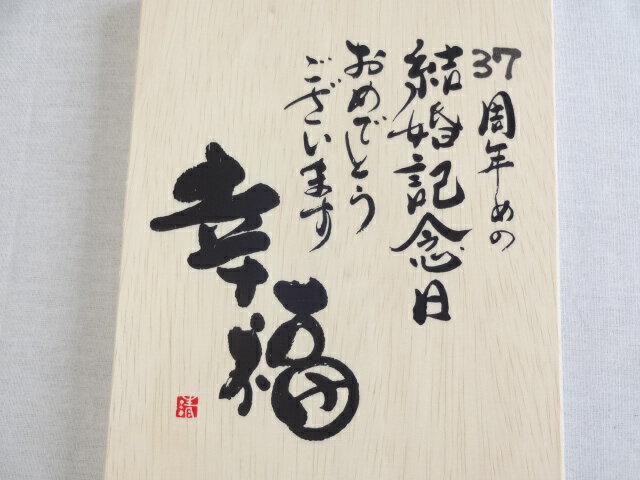 37周年めの
結婚記念日
おめでとう
ございます
幸福